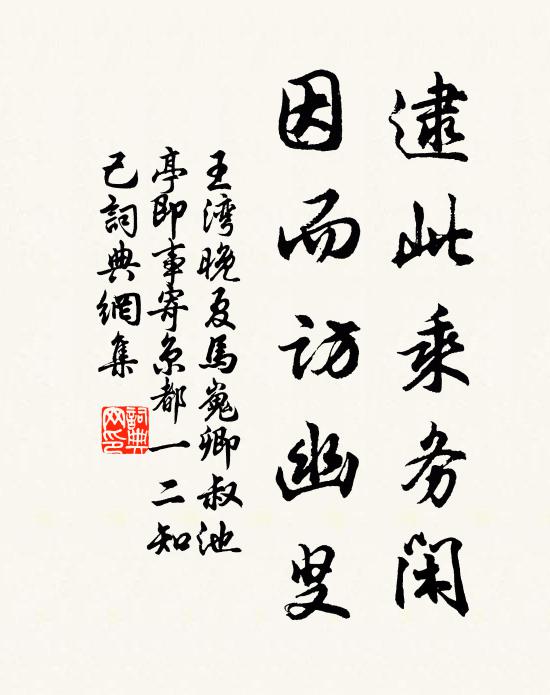 逮此乘务閑
因而访幽叟
王湾晚夏馬嵬卿叔池
亭即事寄京都一二知
己詞典網集
詞典网印